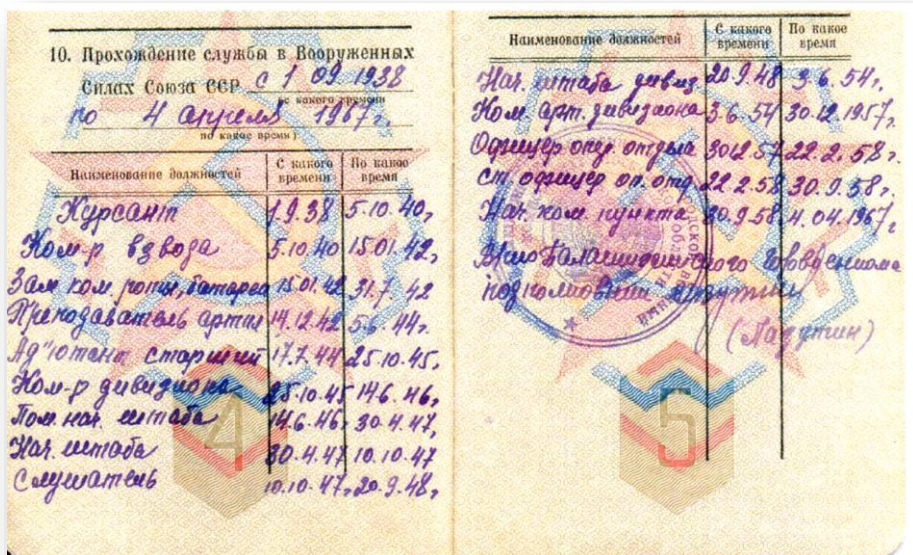 10. Прохождение службы в Вооруженных
Силах Союза ССР с 1 09 1938
(с какого времени
по 4 апреля 1967 г.
по какое время)
Наименование должностей С какого времени По какое время
Курсант 1.9.38 5.10.40 г
Ком-р взвода 5.10.40 15.01.42 г
Зам. ком. роты, батареи 15.01.42 31.7.42
Преподаватель артил 14.12.42 5.6.44 г.
Ад"ютант старший 17.7.44 25.10.45 г
Ком-р дивизиона 25.10.45 14.6.46 г
Пом. нач. штаба 14.6.46 г 30.4.47 г
Нач. штаба 30.4.47 10.10.47
Слушатель 10.10.47 г 20.9.48 г
4
Наименование должностей С какого времени По какое время
Нач. штаба дивиз 20.9.48 3.6.54 г.
Ком. арт. дивизиона 3.6.54 30.12.1957 г.
Офицер опер. отдела 30.12.57 22.2.58 г.
ст. офицер оп. отд. 22.2.58 30.9.58 г.
Нач. ком. пункта 30.9.58 4.04.1967 г
Балашихинского Горвоенкома
подполковник
5